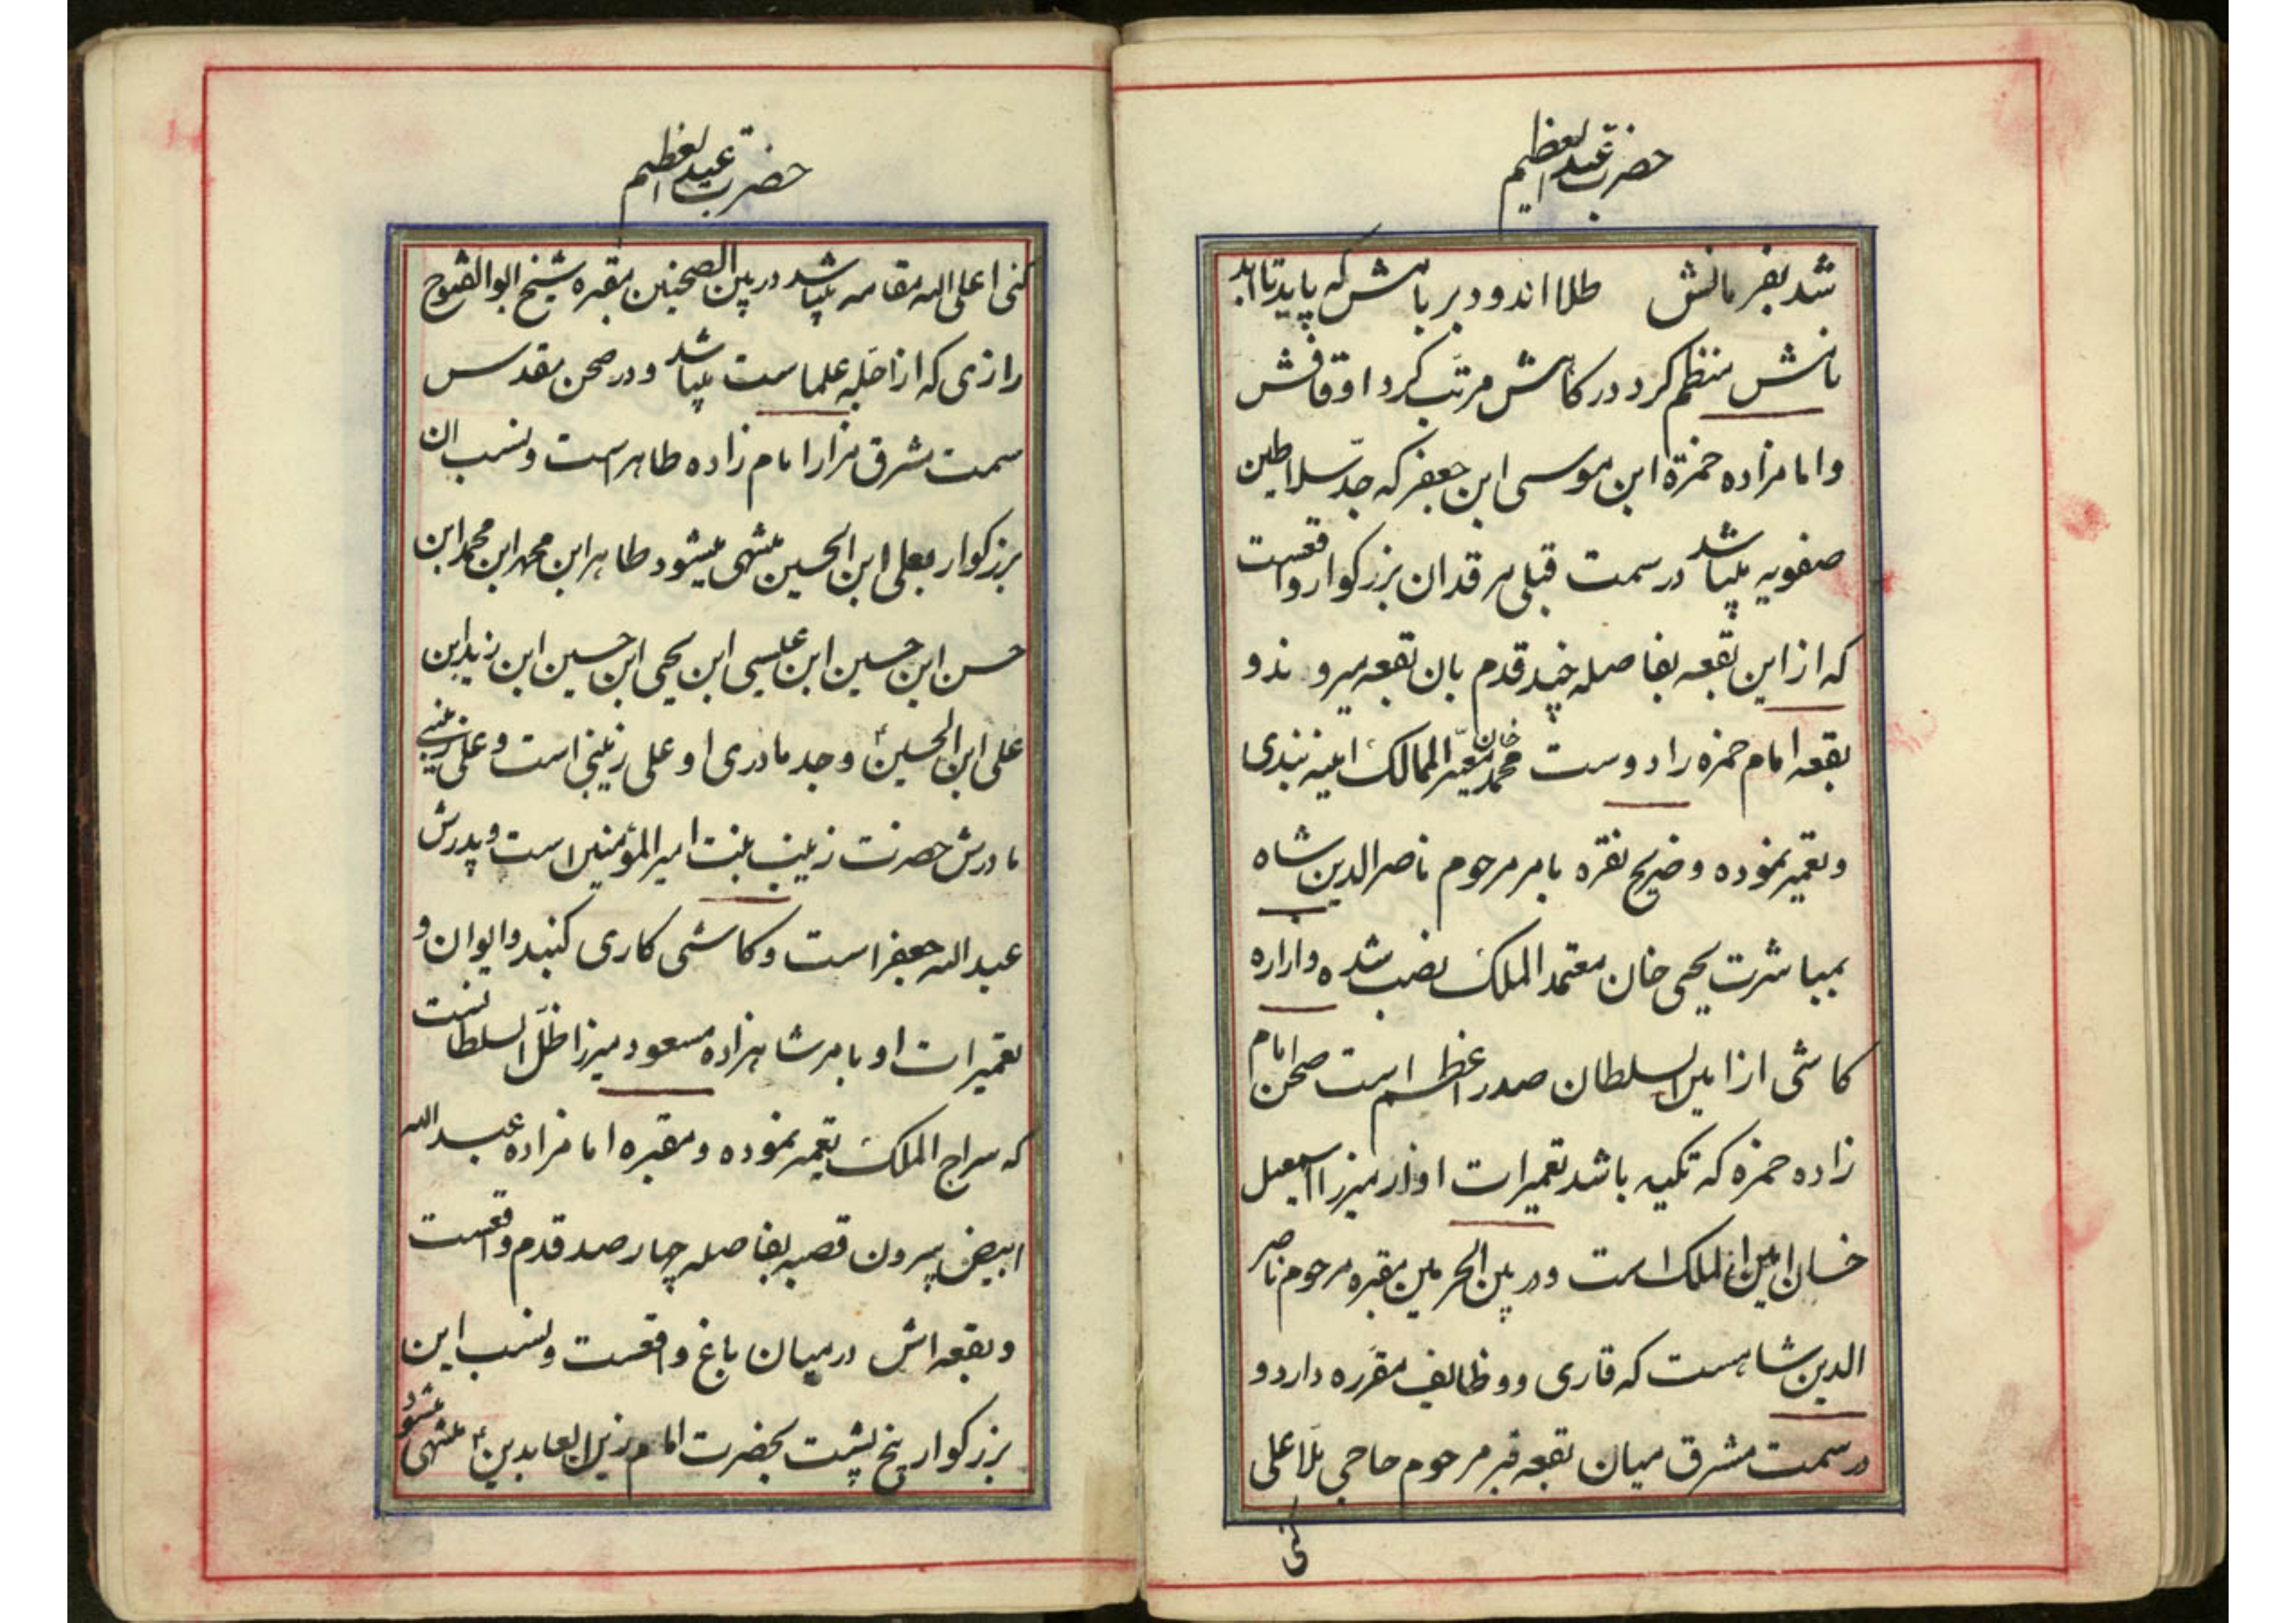 حضرت عبدالعظیم
شد بفرمانش طلا اندود بر بامش که پاید تا ابد
نامش منظم کرد در کاهش مرتب کرد اوقافش
وامامزاده حمزة ابن موسی ابن جعفر که جدّ سلاطین
صفویه میباشد در سمت قبلی مرقد ان بزرکوار واقعست
که از این بقعه بفاصله چند قدم بان بقعه میروند و
بقعه امام حمزه را دوست محمد خان معیّر الممالک اینه بندی
وتعمیر نموده و ضریح نقره بامر مرحوم ناصرالدین شاه
بمباشرت یحیی خان معتمد الملک نصب شده وازاره
کاشی از امین السلطان صدر اعظم است صحن امام
زاده حمزه که تکیه باشد تعمیرات او از میرزا اسمعیل
خان امین الملک است ودر بین الحرمین مقبره مرحوم ناصر
الدین شاهست که قاری ووظایف مقرره دارد و
در سمت مشرق میان بقعه قبر مرحوم حاجی ملا علی
کنی
حضرت عبدالعظیم
کنی اعلی الله مقامه میباشد در بین الصحنین مقبره شیخ ابوالفتوح
رازی که از اجّله علما ست میباشد ودر صحن مقدس
سمت مشرق مزار امام زاده طاهر است و نسب ان
بزرکوار بعلی ابن الحسین منتهی میشود طاهر ابن محمد ابن محمد ابن
حسن ابن حسین ابن عیسی ابن یحیی ابن حسین ابن زید ابن
علی ابن الحسین ع وجد مادری او علی زینبی است و علی زینبی
مادرش حضرت زینب بنت امیر المؤمنین است و پدرش
عبد الله جعفر است و کاشی کاری کنبد وایوان و
تعمیرات او بامر شاهزاده مسعود میرزا ظلّ السلطانست
که سراج الملک تعمیر نموده ومقبره امامزاده عبدالله
ابیض بیرون قصبه بفاصله چهار صد قدم واقعست
وبقعه اش در میان باغ واقعست و نسب این
بزرکوار پنج پشت بحضرت امام زین العابدین ع منتهی میشود